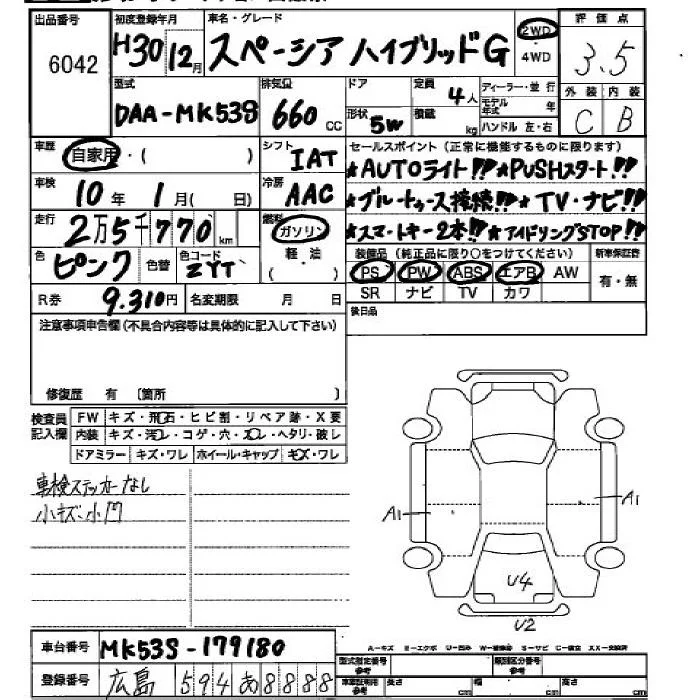 出品番号 初度登録年月 車名・グレード 評価点
6042 H30 12月 スペーシア ハイブリッドG 2WD ・ 4WD 3.5
型式 排気量 ドア 定員 ディーラー・並行 外装 内装
DAA-MK53S 660cc 形状 5W 4人 積載 kg モデル年式 年 ハンドル・左・右 C B
車歴 自家用・( ) シフト IAT セールスポイント (正常に機能するものに限ります)
★AUTOライト!! ★PUSHスタート!!
車検 10年 1月(日) 冷房 AAC ★ブルートゥース接続!! ★TV・ナビ!!
走行 2万5千770km 燃料 ガソリン ・ 軽・油 ( ) ★スマートキー2本!! ★アイドリングSTOP!!
色 ピンク 色替 色コード ZYT 装備品 (純正品に限り○をつけてください) 新車保証書
PS PW ABS エアB AW 有・無
R券 9.310円 名変期限 月 日 SR ナビ TV カワ
注意事項申告欄(不具合内容等は具体的に記入して下さい) 後日品
修復歴 有 〔箇所 〕
検査員記入欄 FW キズ・飛石・ヒビ割・リペア跡・X要
内装 キズ・汚レ・コゲ・穴・スレ・ヘタリ・破レ
ドアミラー キズ・ワレ ホイール・キャップ キズ・ワレ
車検ステッカーなし
小キズ・小凹
A1 A1
U4
U2
車台番号 MK53S-179180
登録番号 広島 594 あ 8888
型式指定番号 参考 類別区分番号 参考
車庫証明用 参考 長さ cm 幅 cm 高さ cm